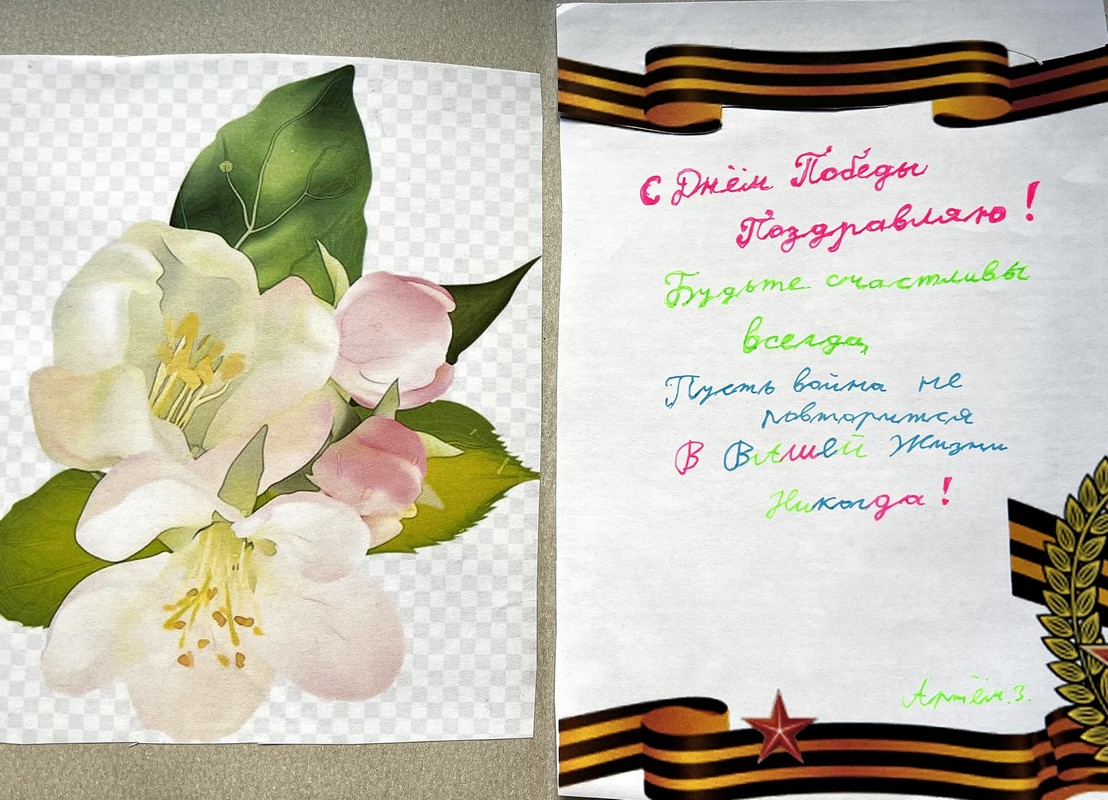 С Днём Победы
Поздравляю!
Будьте счастливы
всегда,
Пусть война не
повторится
В ВАшей Жизни
Никогда!
Артём.З.